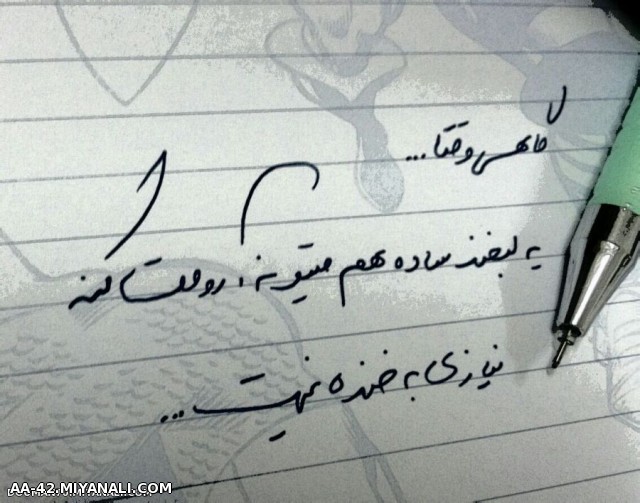 گاهی وقتا...
یه لبخند ساده هم میتونه آرومت کنه
نیازی به خنده نیست...
AA-42.MIYANALI.COM